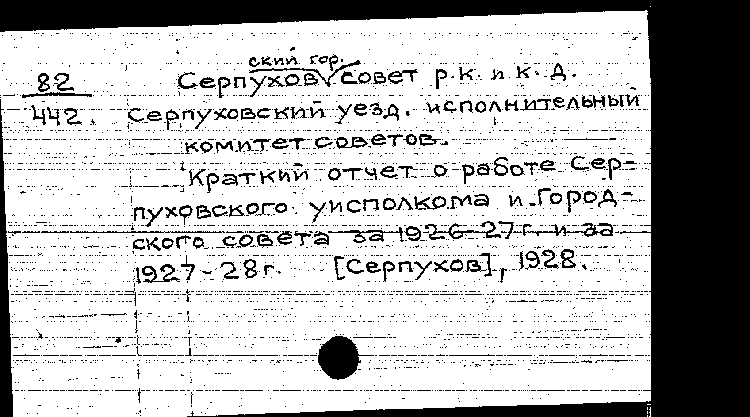 ский гор.
82 Серпухов совет р.к. и к. д.
442. Серпуховский уезд. исполнительный
комитет советов.
Краткий отчет о работе Сер-
пуховского уисполкома и Город-
ского совета за 1926-27г. и за
1927-28г. [Серпухов], 1928.